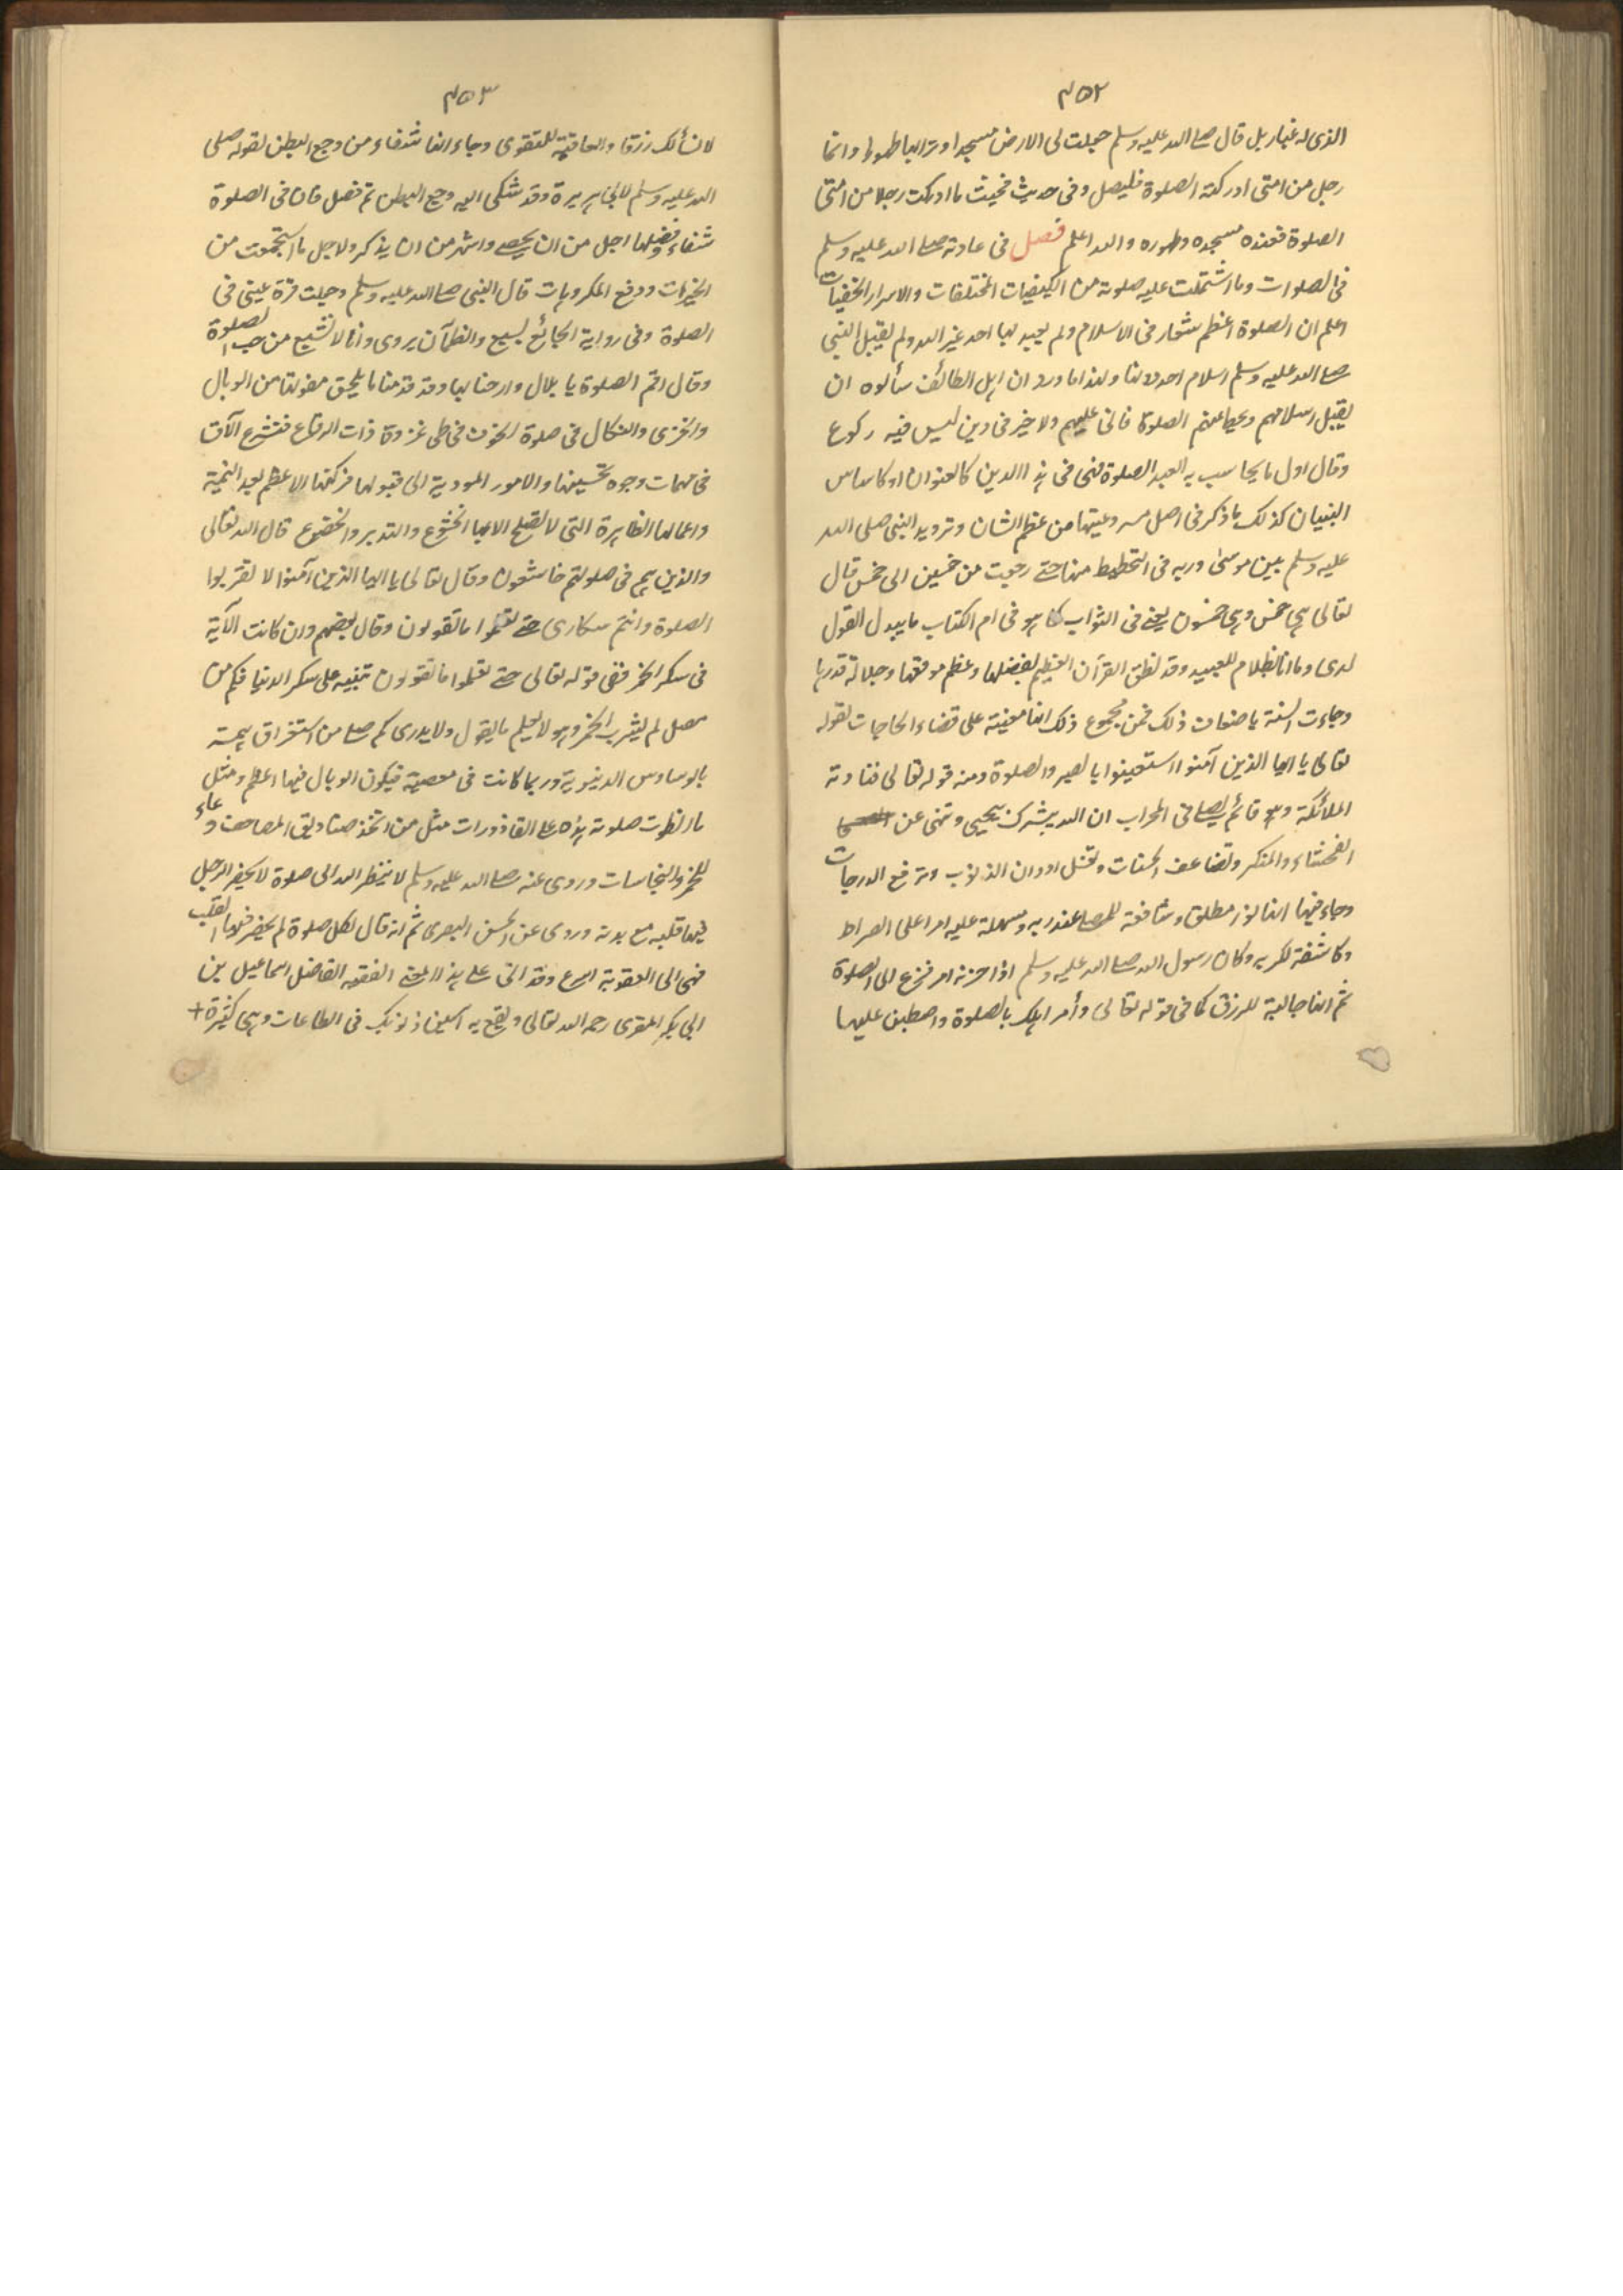 ٤٥٢
الذى له غبار بل قال صلى الله عليه وسلم جعلت لى الارض مسجدا وترابها طهورا وانما
رجل من امتى ادركته الصلوة فليصل وفى حديث فحيث ما ادركت رجلا من امتى
الصلوة فعنده مسجده وطهوره والله اعلم فصل فى عادته صلى الله عليه وسلم
فى الصلوات وما اشتملت عليه صلوته من الكيفيات المختلفات والاسرار الخفيات
اعلم ان الصلوة اعظم شعار فى الاسلام ولم يعبد بها احد غير الله ولم يقبل النبى
صلى الله عليه وسلم اسلام احد لا لنا ولهذا ما ورد ان اهل الطائف سألوه ان
يقبل اسلامهم ويحط عنهم الصلوة فابى عليهم ولا خير فى دين ليس فيه ركوع
وقال اول ما يحاسب به العبد الصلوة فهى فى هذا الدين كالعنوان او كاساس
البنيان كذلك ما ذكر فى اصل مسروعيتها من عظم الشان وترويد النبى صلى الله
عليه وسلم بين موسى وربه فى التحطيط منها حتى رجعت من خمسين الى خمس قال
تعالى هى خمس وهى خمسون يعنى فى الثواب كما هو فى ام الكتاب ما يبدل القول
لدى وما انا بظلام للعبيد وقد نطق القرآن العظيم بفضلها وعظم موقعها وجلالة قدرها
وجاءت السنة باضعاف ذلك فمن مجموع ذلك انها معينة على قضاء الحاجات لقوله
تعالى يا ايها الذين آمنوا استعينوا بالصبر والصلوة ومنه قوله تعالى فنادته
الملائكة وهو قائم يصلى فى المحراب ان الله يبشرك بيحيى وتنهى عن
الفحشاء والمنكر وتضاعف الحسنات وتغسل ادران الذنوب وترفع الدرجات
وجاء فيها انها نور مطلق وشافعة للمصلى عند ربه ومسهلة عليه امرا على الصراط
وكاشفة لكربه وكان رسول الله صلى الله عليه وسلم اذا حزنه امر فزع الى الصلوة
ثم انها جالبة للرزق كما فى قوله تعالى وأمر اهلك بالصلوة واصطبر عليها
٤٥٣
لا نسألك رزقا والعاقبة للتقوى وجاء انها شفاء من وجع البطن لقوله صلى
الله عليه وسلم لابى هريرة وقد شكى اليه وجع البطن قم فصل فان فى الصلوة
شفاء وفضلها اجل من ان يحصى واشهر من ان يذكر ولاجل ما استجمعت من
الخيرات ودفع المكروهات قال النبى صلى الله عليه وسلم وجعلت قرة عينى فى
الصلوة وفى رواية الجائع يشبع والظمآن يروى وانا لا اشبع من حب الصلوة
وقال اقم الصلوة يا بلال وارحنا بها وقد قدمنا ما يلحق مفوتها من الوبال
والخزى والنكال فى صلوة الخوف فى طى غزوة ذات الرقاع فنشرع الآن
فى مهمات وجوه تحسينها والامور المودية الى قبولها فركنها الاعظم بعد النية
واعمالها الظاهرة التى لا تصلح الا بها الخشوع والتدبر والخضوع قال الله تعالى
والذين هم فى صلوتهم خاشعون وقال تعالى يا ايها الذين آمنوا لا تقربوا
الصلوة وانتم سكارى حتى تعلموا ما تقولون وقال بعضهم وان كانت الآية
فى سكر الخمر ففى قوله تعالى حتى تعلموا ما تقولون تنبيه على سكر الدنيا فكم من
مصل لم يشرب الخمر وهو لا يعلم ما يقول ولا يدرى كم صلى من استغراق همته
بالوساوس الدنيوية وربما كانت فى معصية فيكون الوبال فيها اعظم ومثل
ما انطوت صلوته هذه على القاذورات مثل من اتخذ صناديق المصاحف وعاء
للخمر والنجاسات وروى عنه صلى الله عليه وسلم لا ينظر الله الى صلوة لا يحضر الرجل
فيها قلبه مع بدنه وروى عن الحسن البصرى ثم انه قال لكل صلوة لم يحضر فيها القلب
فهى الى العقوبة اسرع وقد اتى على هذا المعنى الفقيه الفاضل اسماعيل بن
ابى بكر المقرى رحمه الله تعالى ذنوبك فى الطاعات وهى كثيرة +